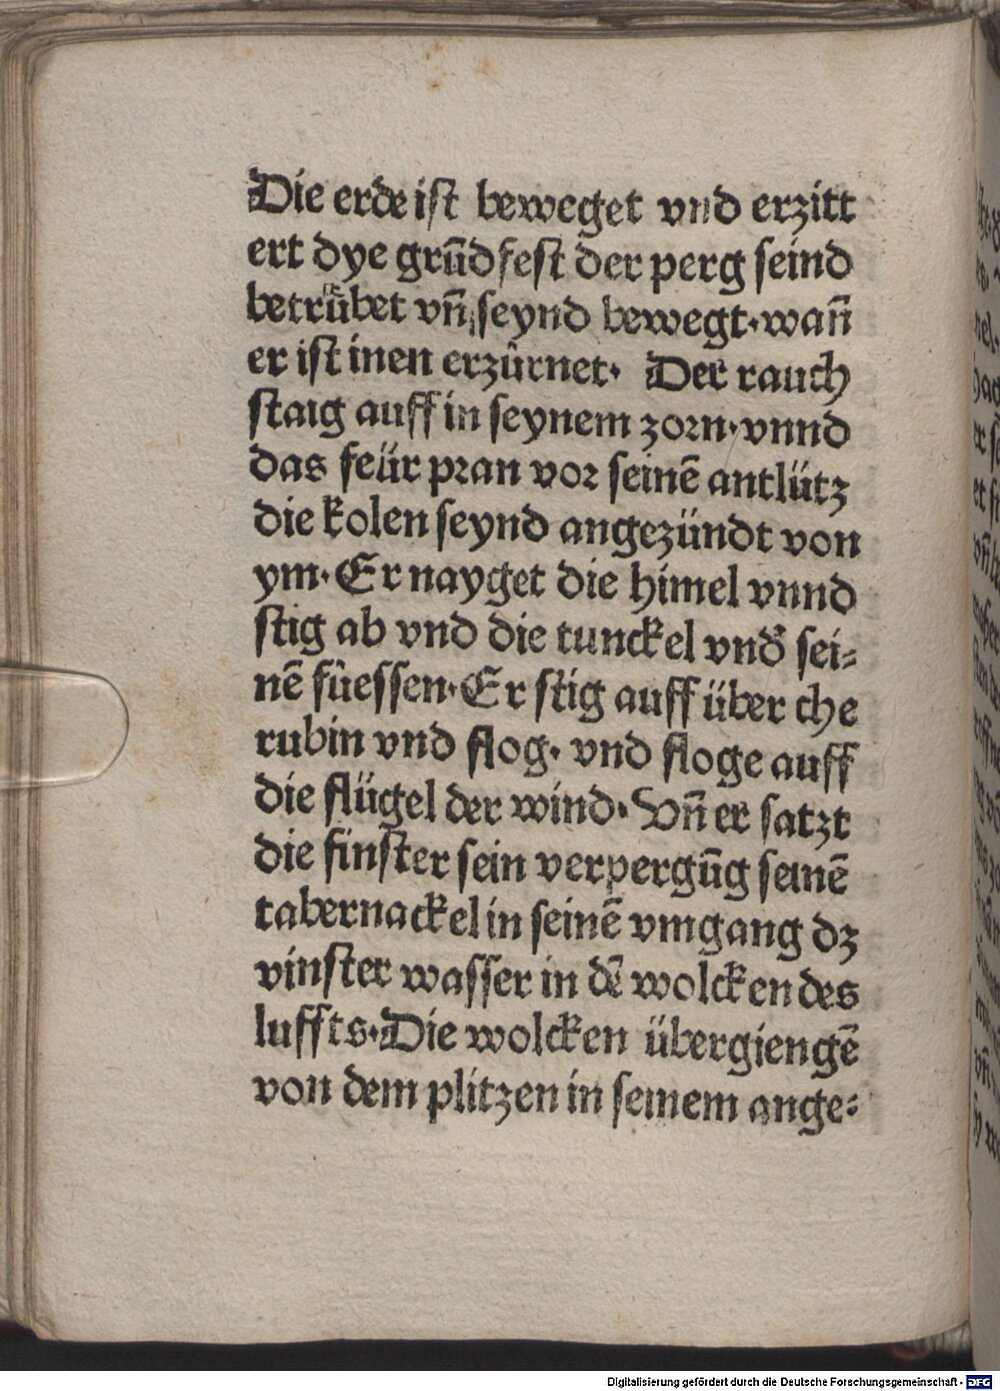 Die erde ist beweget vnd erzitt
ert dye grūdfest der perg seind
betrübet vñ seynd bewegt·wañ
er ist inen erzürnet· Der rauch
staig auff in seynem zorn·vnnd
das feür pran vor seinē antlütz
die kolen seynd angezündt von
ym·Er nayget die himel vnnd
stig ab vnd die tunckel vnd̄ sei⸗
nē füessen·Er stig auff über che
rubin vnd flog· vnd floge auff
die flügel der wind·Vñ er satzt
die finster sein verpergūg seinē
tabernackel in seinē vmgang dz
vinster wasser in dē wolcken des
luffts·Die wolcken übergiengē
von dem plitzen in seinem ange⸗
Digitalisierung gefördert durch die Deutsche Forschungsgemeinschaft - DFG